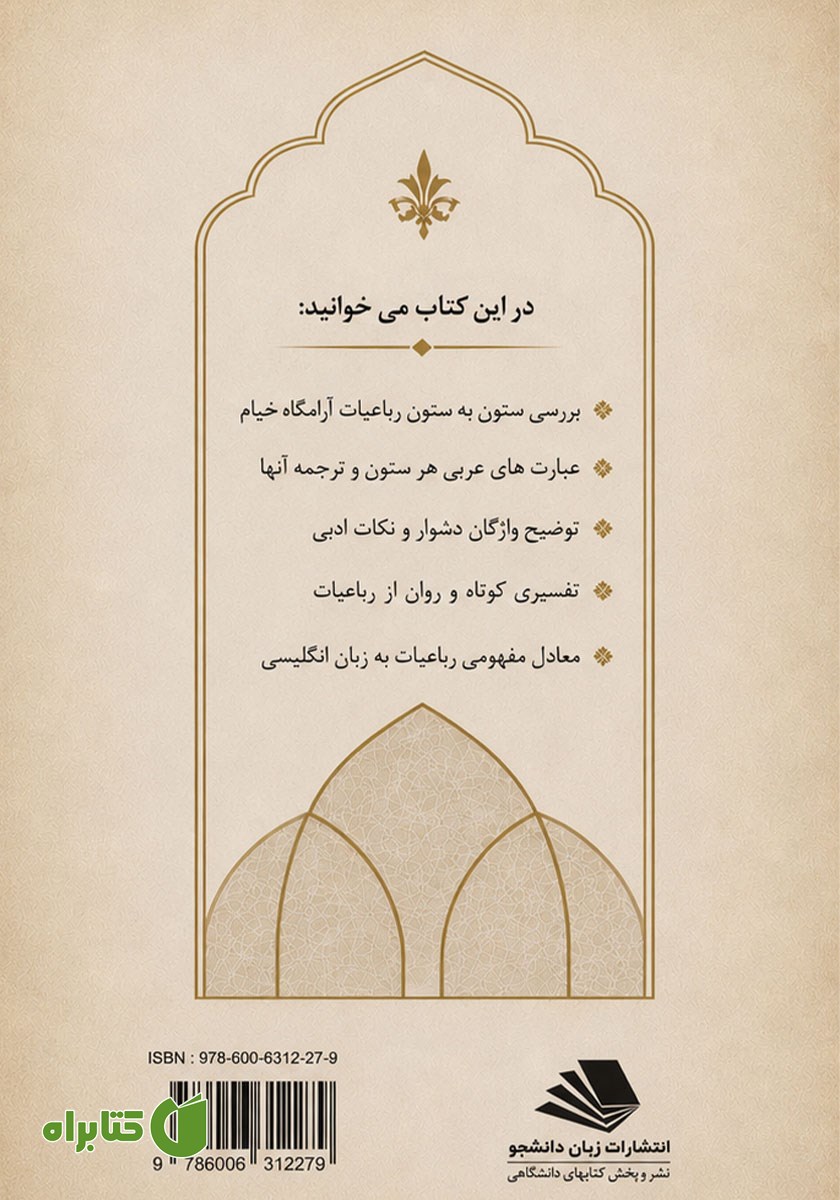 در این کتاب می خوانید:
بررسی ستون به ستون رباعیات آرامگاه خیام
عبارت های عربی هر ستون و ترجمه آنها
توضیح واژگان دشوار و نکات ادبی
تفسیری کوتاه و روان از رباعیات
معادل مفهومی رباعیات به زبان انگلیسی
ISBN : 978-600-6312-27-9
9 786006 312279
کتابراه
انتشارات زبان دانشجو
نشر و پخش کتابهای دانشگاهی